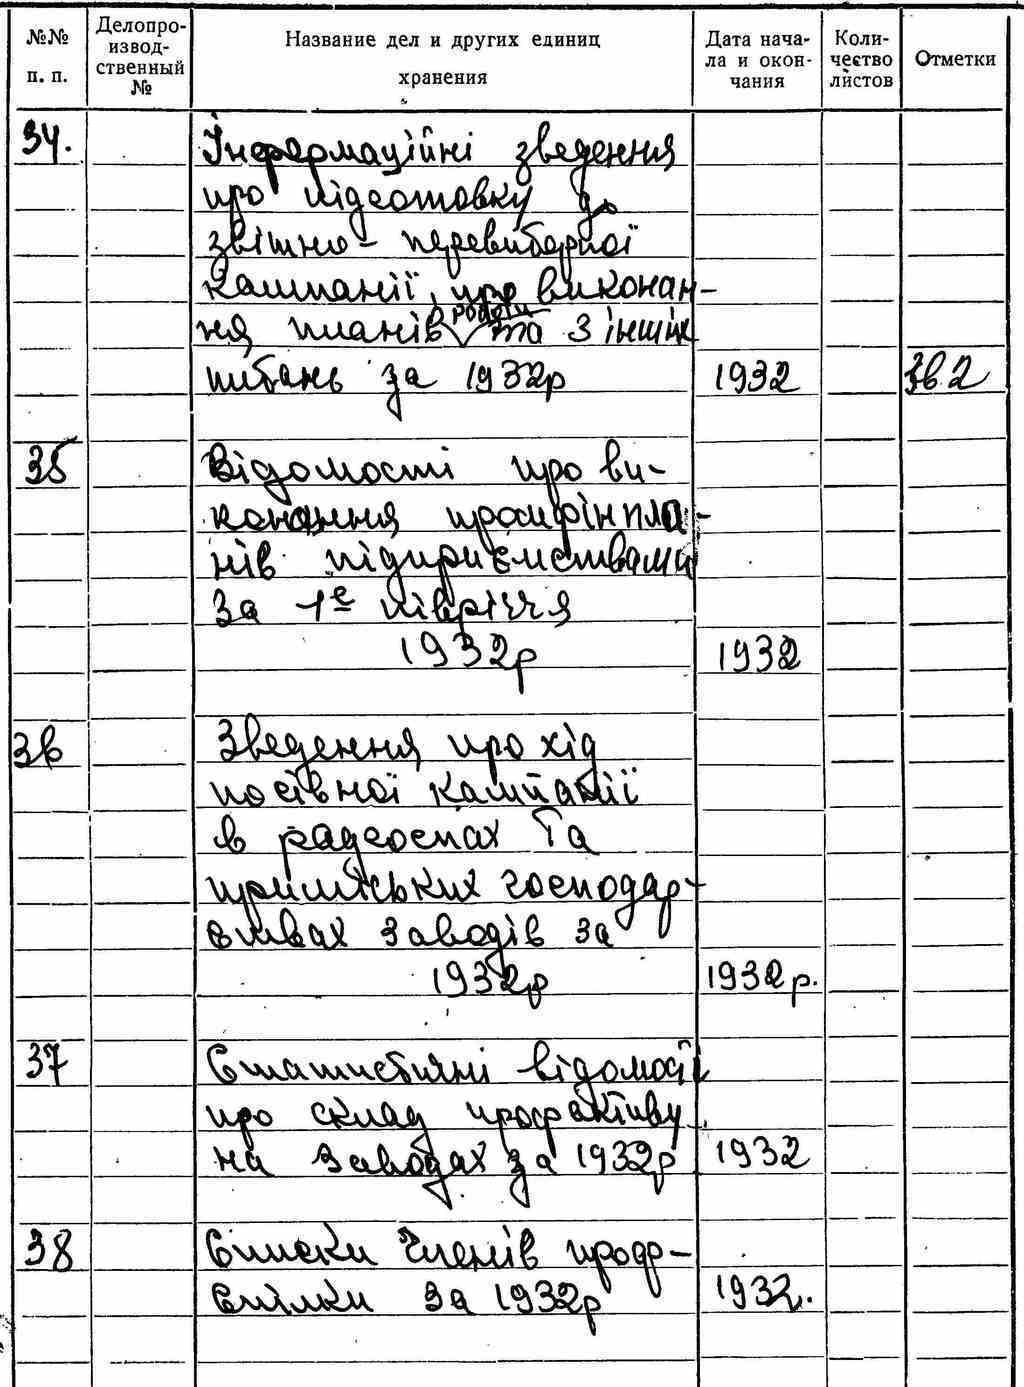 №№ п. п.
Делопро-
извод-
ственный
№
Название дел и других единиц
хранения
Дата нача-
ла и окон-
чания
Коли-
чество
листов
Отметки
34. Інформаційні зведення
про підготовку до
звітно-перевиборної
кампанії, про виконан-
ня планів роботи та з інших
питань за 1932р 1932
35 Відомості про ви-
конання промфінпла-
нів підприємствами
за 1е півріччя
1932р 1932
36 Зведення про хід
посівної кампанії
в радгоспах та
приміських господар-
ствах заводів за
1932р 1932р.
37 Статистичні відомості
про склад профактиву
на заводах за 1932р 1932
38 Списки членів профс-
спілки за 1932р 1932.